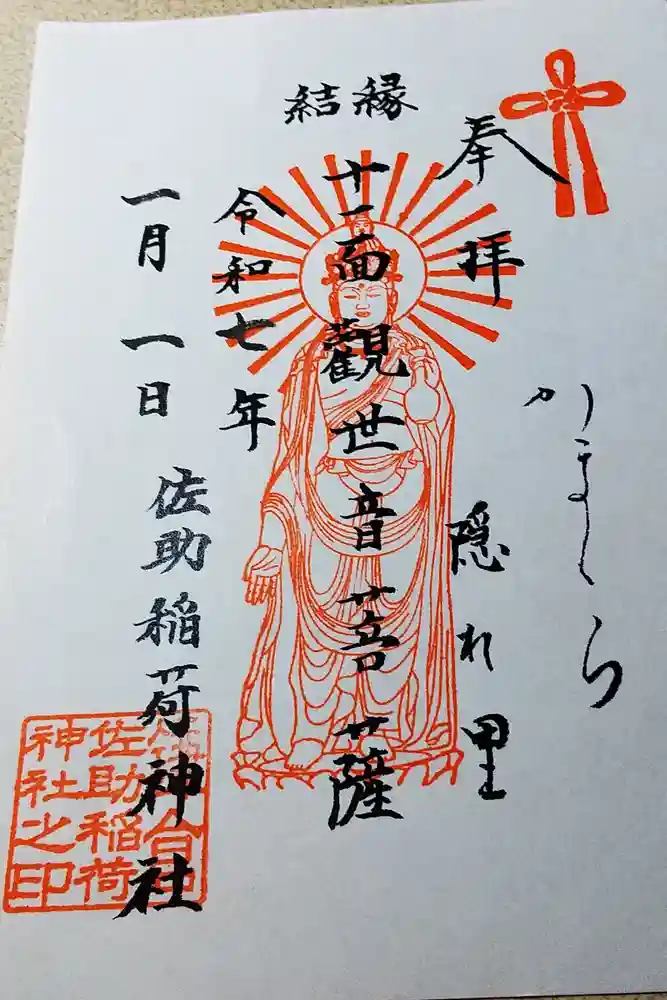 かまくら
奉拝 隠れ里
縁結
十一面觀世音菩薩
令和七年
一月一日 佐助稲荷神社
佐助稲荷
神社之印